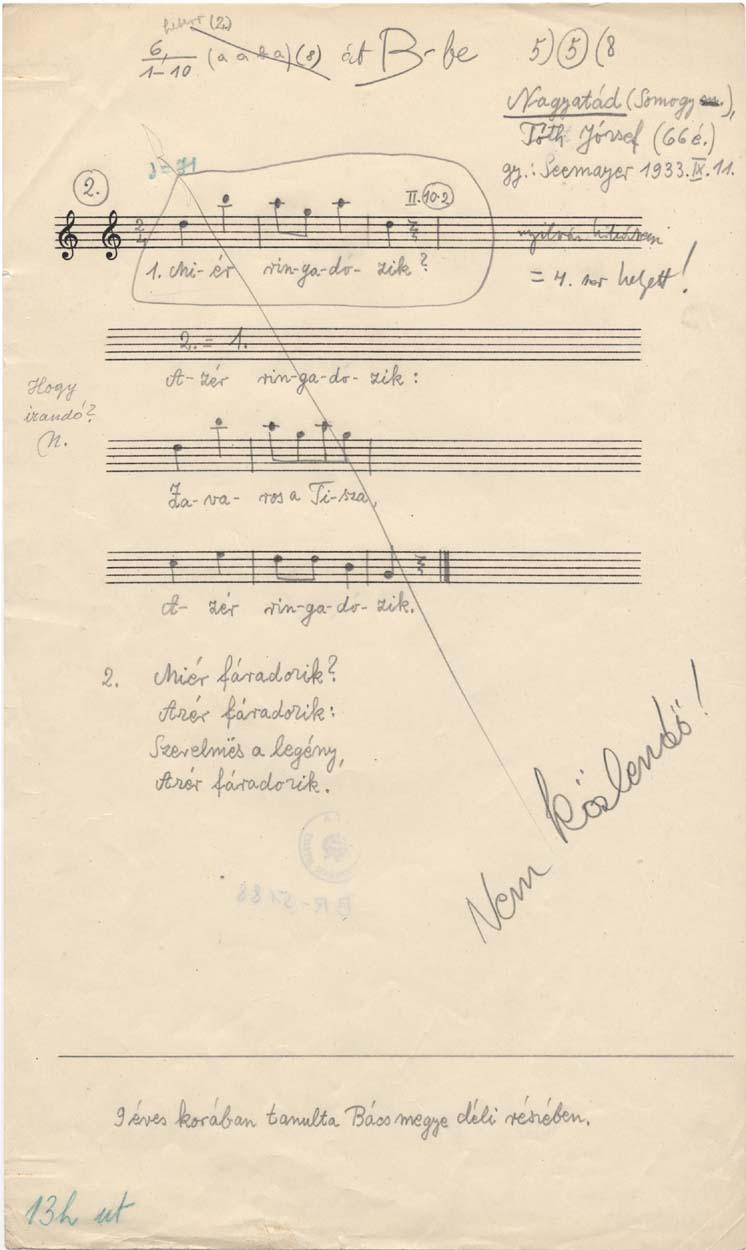 (2.)
6, 1–10 (a a b a) (8) át B-be
5) (5) (8
Nagyatád (Somogy m.),
Tóth József (66 é.)
gy.: Seemayer 1933.IX.11.
2.
II.10.2
2/4
1. Mi-ér rin-ga-do-zik?
nyilván
= 4. sor helyett!
2. = 1.
A-zér rin-ga-do-zik:
Hogy
irandó?
N.
Za-va-ros a Ti-sza,
A-zér rin-ga-do-zik.
2. Miér fáradozik?
Azér fáradozik:
Szerelmës a legény,
Azér fáradozik.
Nem közlendő!
BR-5188
9 éves korában tanulta Bács megye déli részében.
13h ut